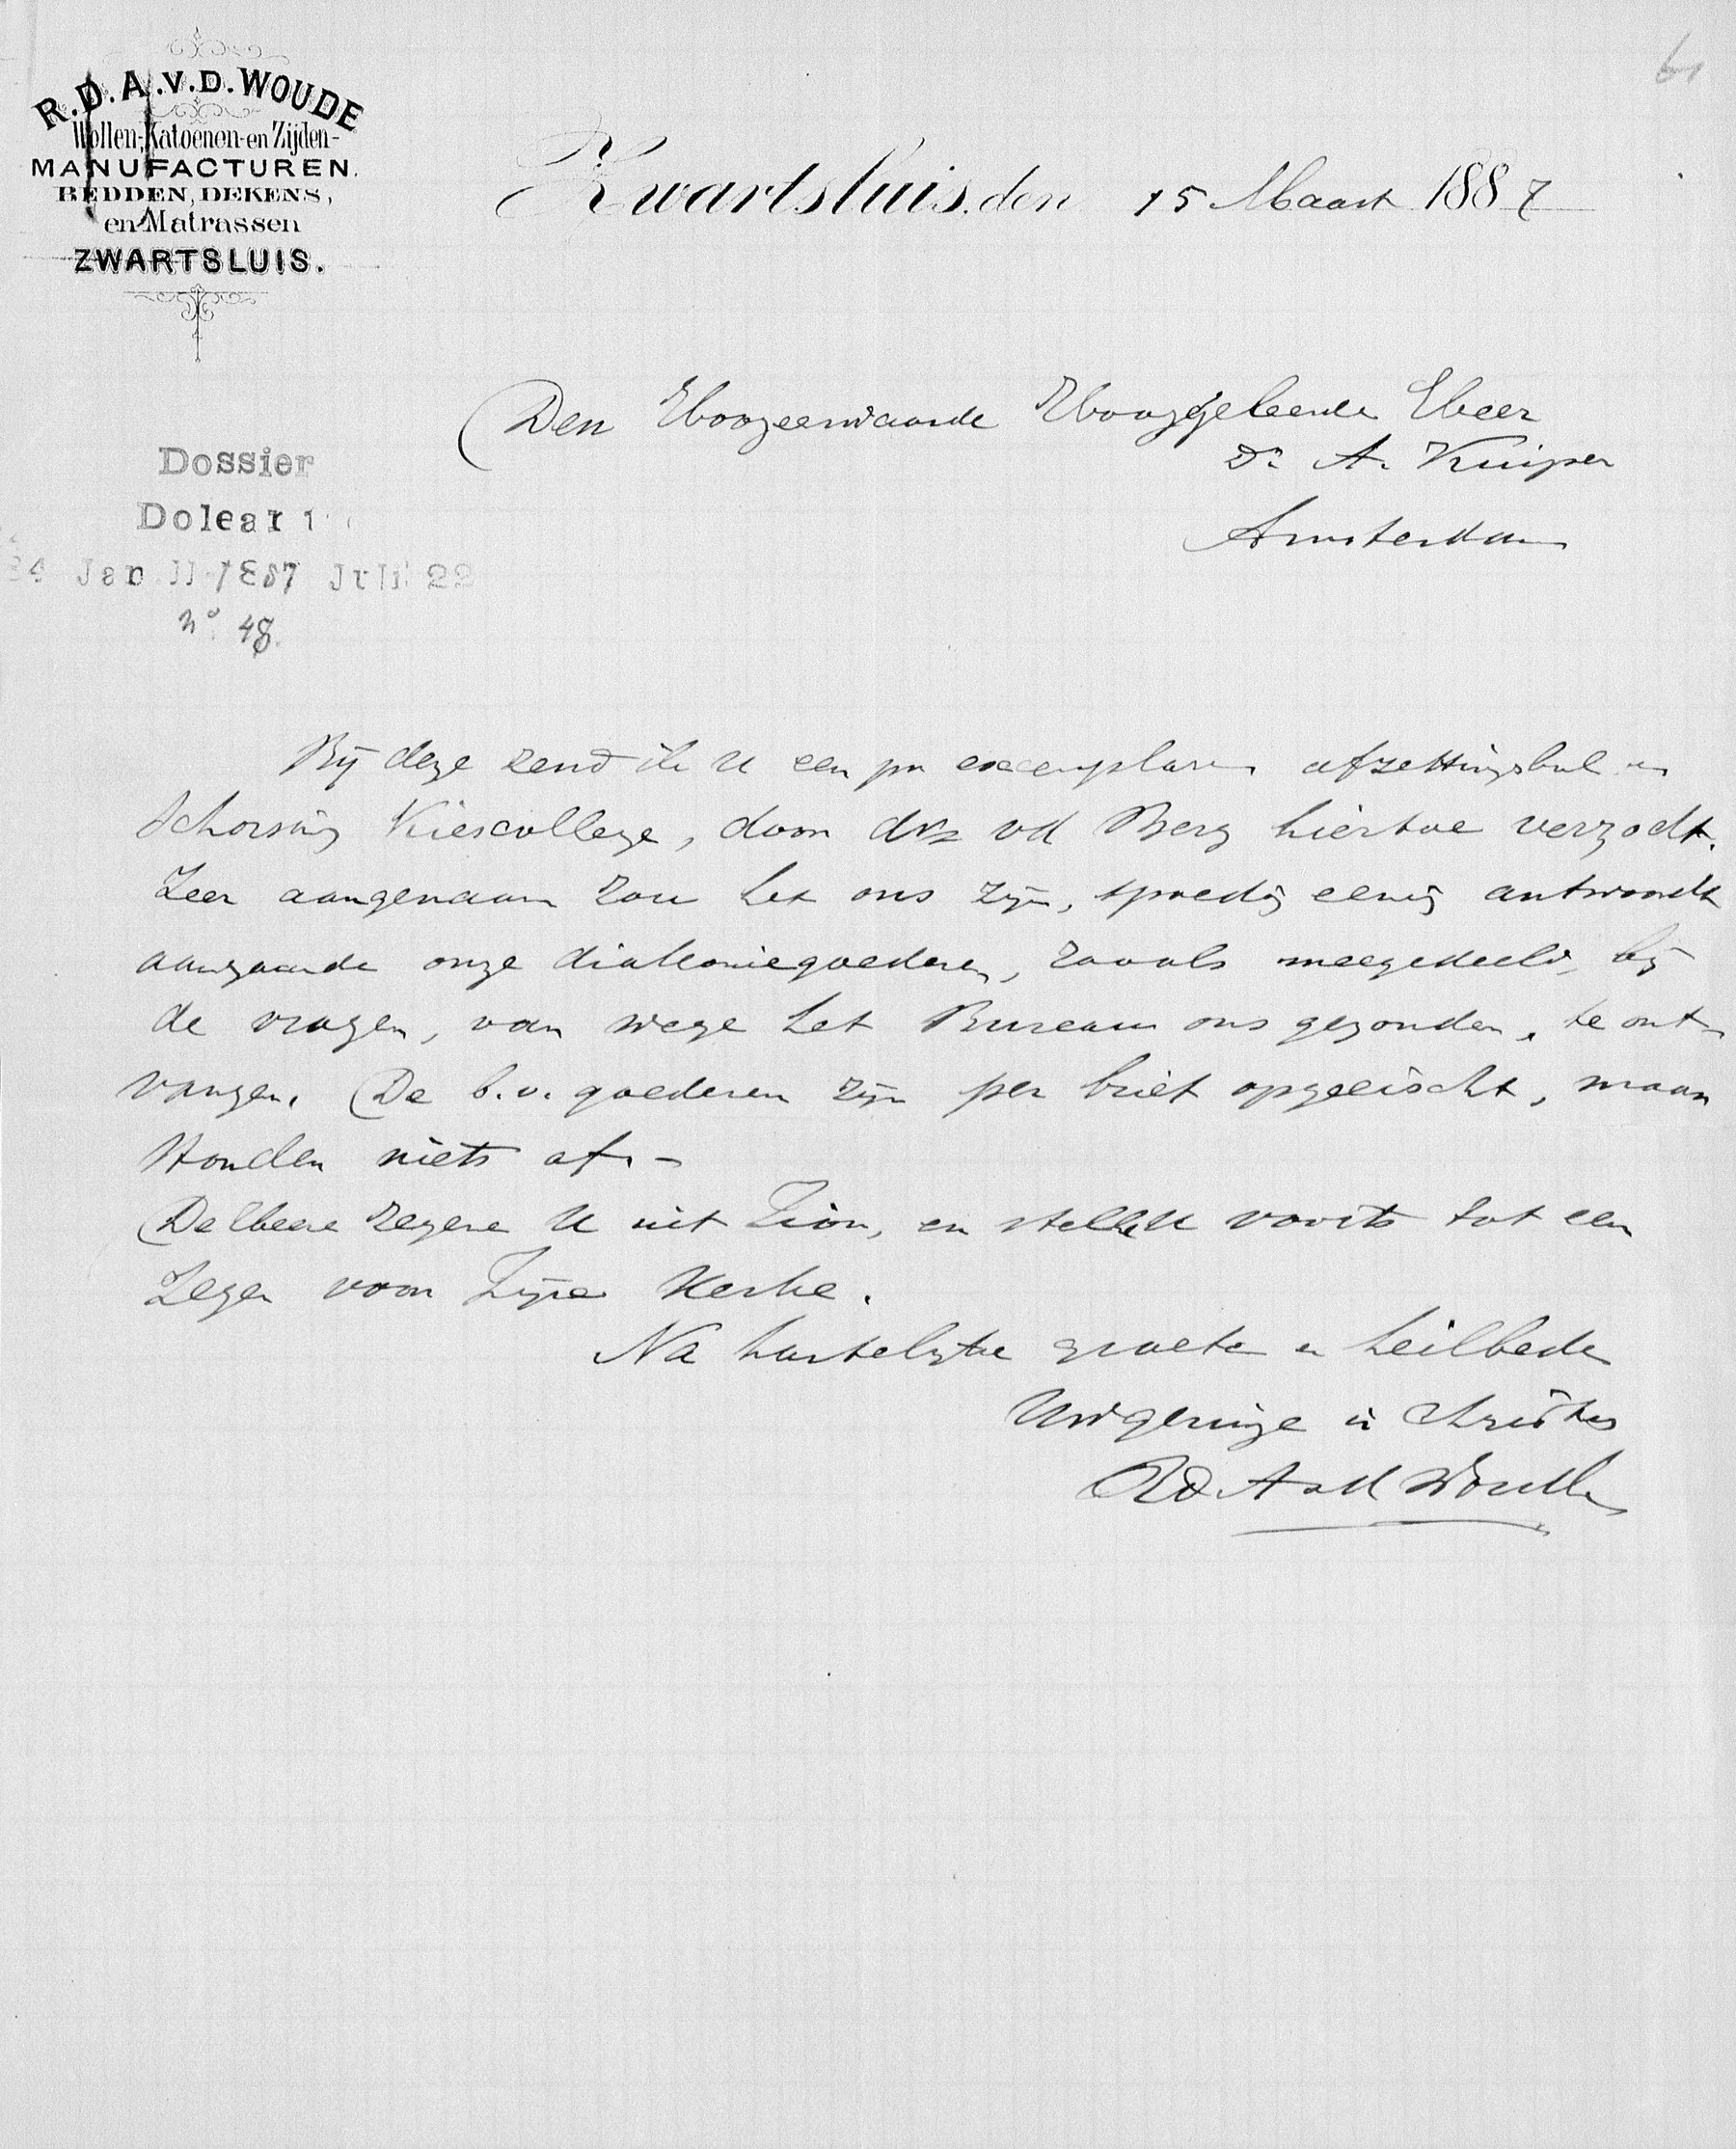 R.D.A.V.D. WOUDE
Wollen-, Katoenen- en Zijden-
MANUFACTUREN.
BEDDEN, DEKENS,
en Matrassen
ZWARTSLUIS.
Zwartsluis, den 15 Maart 1887
Den Hoogeerwaarde Hooggeleerde Heer
Dr A. Kuiper
Amsterdam
Dossier
Doleart
Jan 11 1887 Juli 22
No 48.
Bij deze zend ik U een pr exemplaren afzettingsbul en
Schorsing Kiescollege, door drs vd Berg hiertoe verzocht.
Zeer aangenaam zou het ons zijn, spoedig eenig antwoordt
aangaande onze diakoniegoederen, zooals meegedeeld bij
de vragen, van wege het Bureau ons gezonden, te ont-
vangen. De b.v. goederen zijn per brief opgeëischt, maar
stonden niets af. -
De Heere zegene U uit Zion, en stelle U voorts tot een
Zegen voor Zijne Kerke.
Na hartelijke groete en heilbede
Uw geringe in Christus
RD. A vd Woude